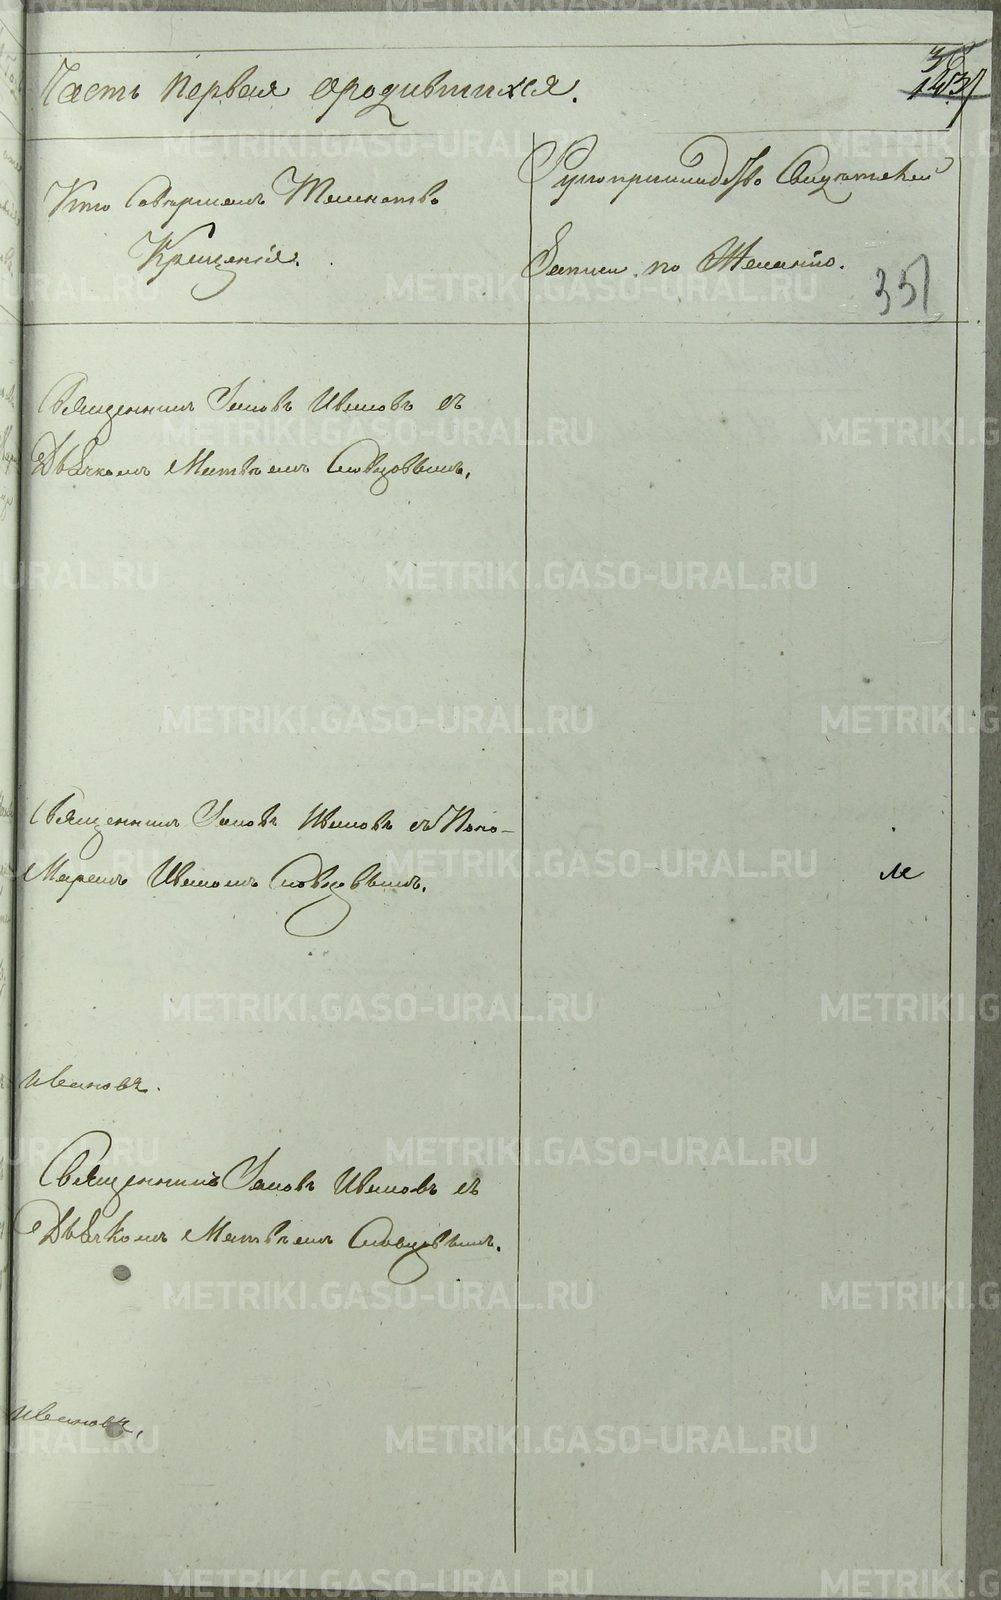 Часть первая ородившихся.
35
Кто Совершалъ Таинство
Крещенія.
Рукоприкладство Свидѣтелей
Записи по Желанію.
Священникъ Іаковъ Ивановъ съ
Дьячкомъ Матвѣемъ Словцовымъ.
Священникъ Іаковъ Ивановъ съ Поно-
Маремъ Иваномъ Словцовымъ.
м
Ивановъ.
Священникъ Іаковъ Ивановъ съ
Дьячкомъ Матвѣемъ Словцовымъ.
Ивановъ,
METRIKI.GASO-URAL.RU